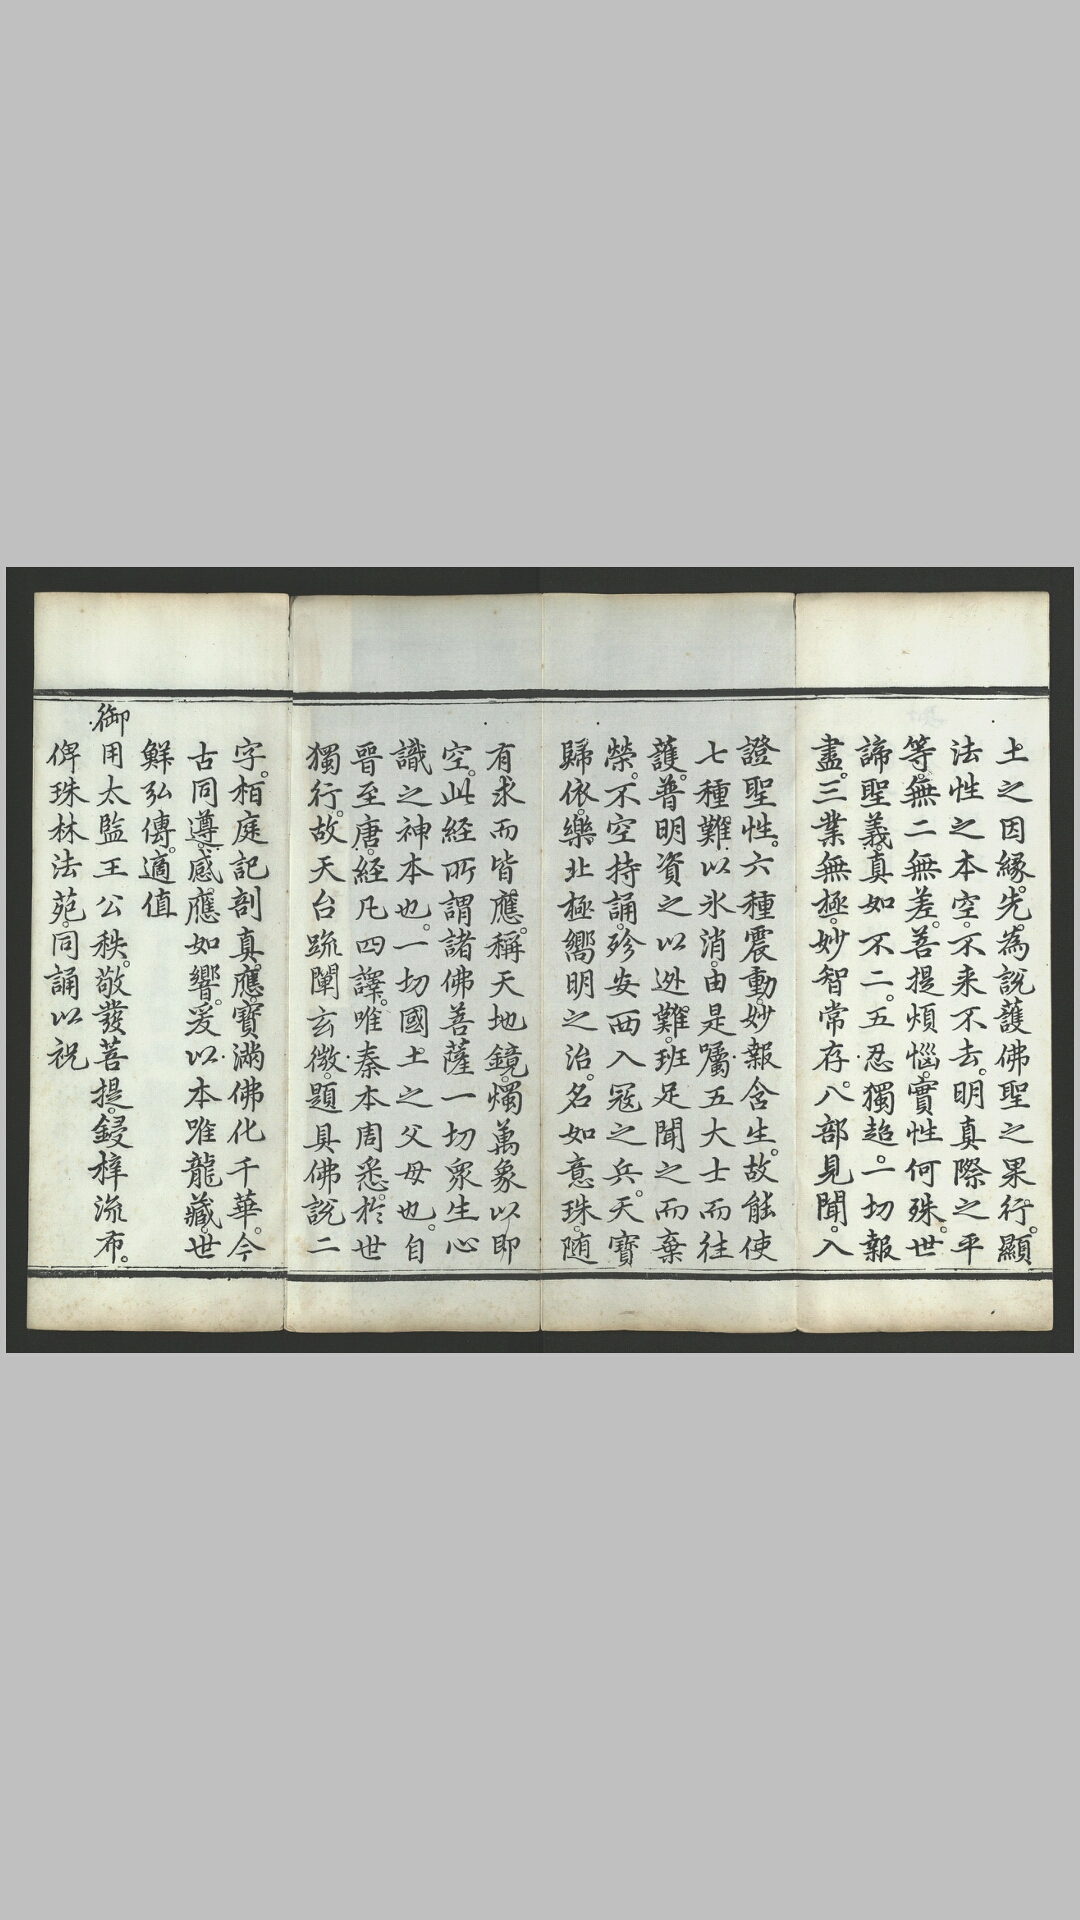 土之因緣。先為說護佛聖之果行。顯
法性之本空。不来不去。明真際之平
等。無二無差。菩提煩惱。實性何殊。世
諦聖義。真如不二。五忍獨超。一切報
盡。三業無極。妙智常存。八部見聞。入
證聖性。六種震動。妙報含生。故能使
七種難以氷消。由是囑五大士而往
護。普明資之以迯難。班足聞之而棄
榮。不空持誦。殄安西入冦之兵。天寶
歸依。樂北極嚮明之治。名如意珠。随
有求而皆應。稱天地鏡。燭萬象以即
空。此経所謂諸佛菩薩一切眾生心
識之神本也。一切國土之父母也。自
晉至唐。経凡四譯。唯秦本周悉。於世
獨行。故天台䟽闡玄微。題具佛說二
字。栢庭記剖真應。寶滿佛化千華。今
古同遵。感應如響。爰以本唯龍藏。世
鮮弘傳。適值
御用太監王公秩。敬發菩提。鋟梓流布。
俾珠林法苑。同誦以祝